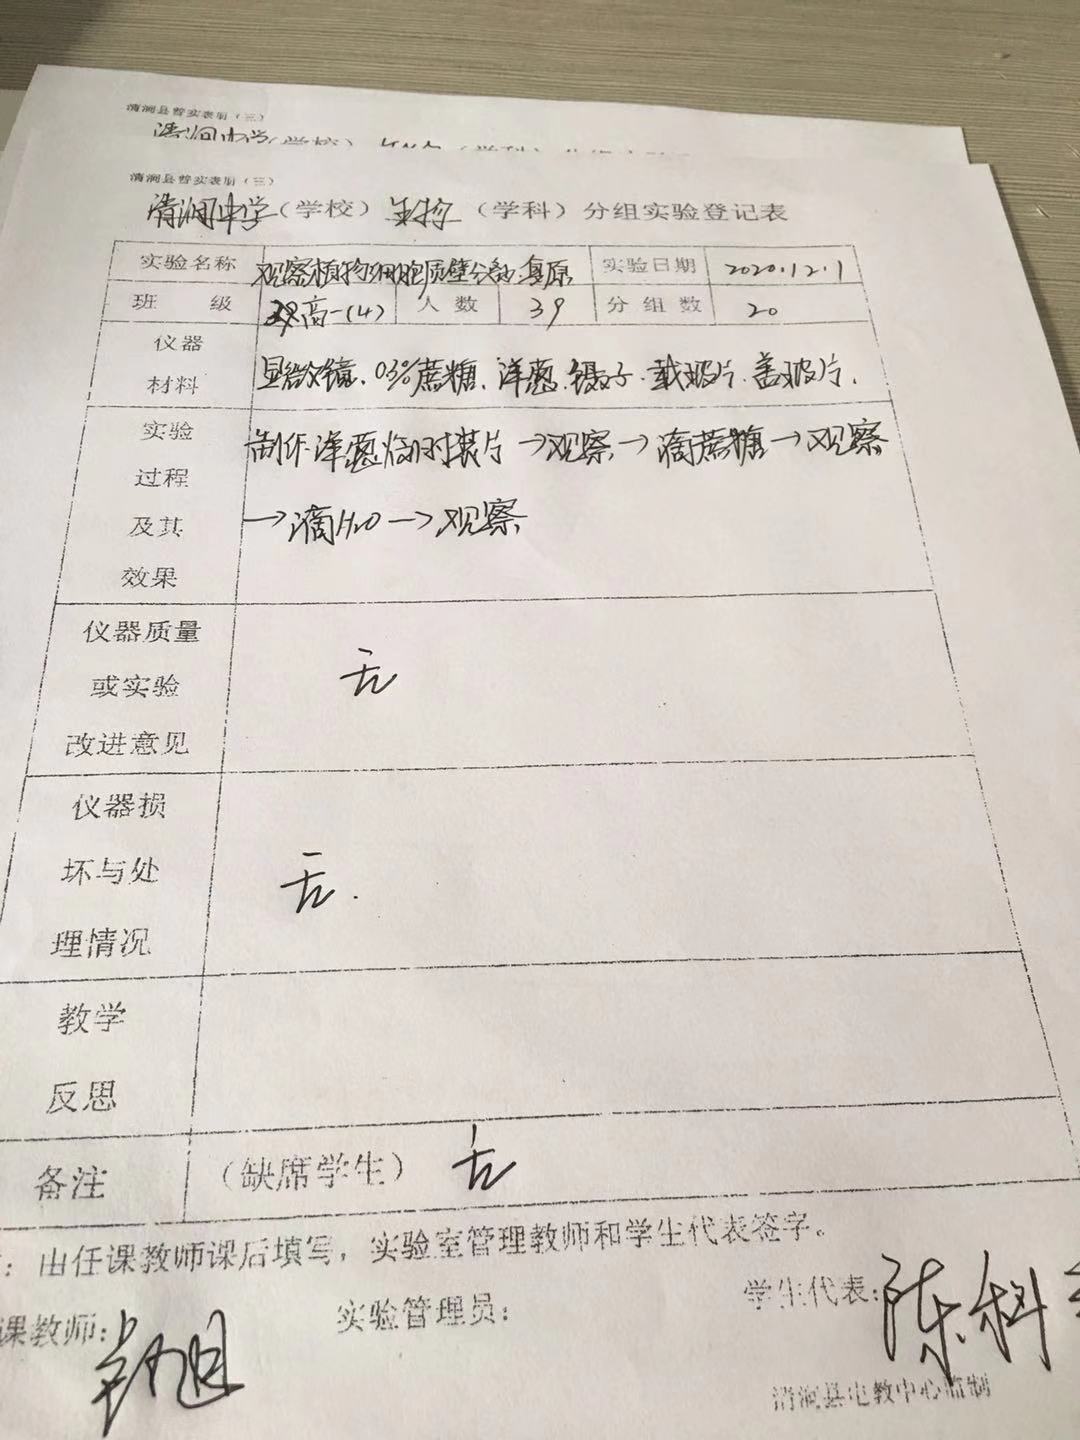 清涧县普实表册（三）
清涧中学（学校）
清涧县普实表册（三）
清涧中学（学校）生物（学科）分组实验登记表
实验名称 观察植物细胞质壁分离.复原 实验日期 2020.12.1
班 级 高一(4) 人数 39 分组数 20
仪器
材料
显微镜、0.3%蔗糖、洋葱.镊子.载玻片.盖玻片.
实验
过程
及其
效果
制作洋葱临时装片→观察→滴蔗糖→观察
→滴H₂O→观察
仪器质量
或实验
改进意见
无
仪器损
坏与处
理情况
无.
教学
反思
备注 （缺席学生） 无
：由任课教师课后填写，实验室管理教师和学生代表签字。
课教师： 实验管理员： 学生代表：陈科
清涧县电教中心监制